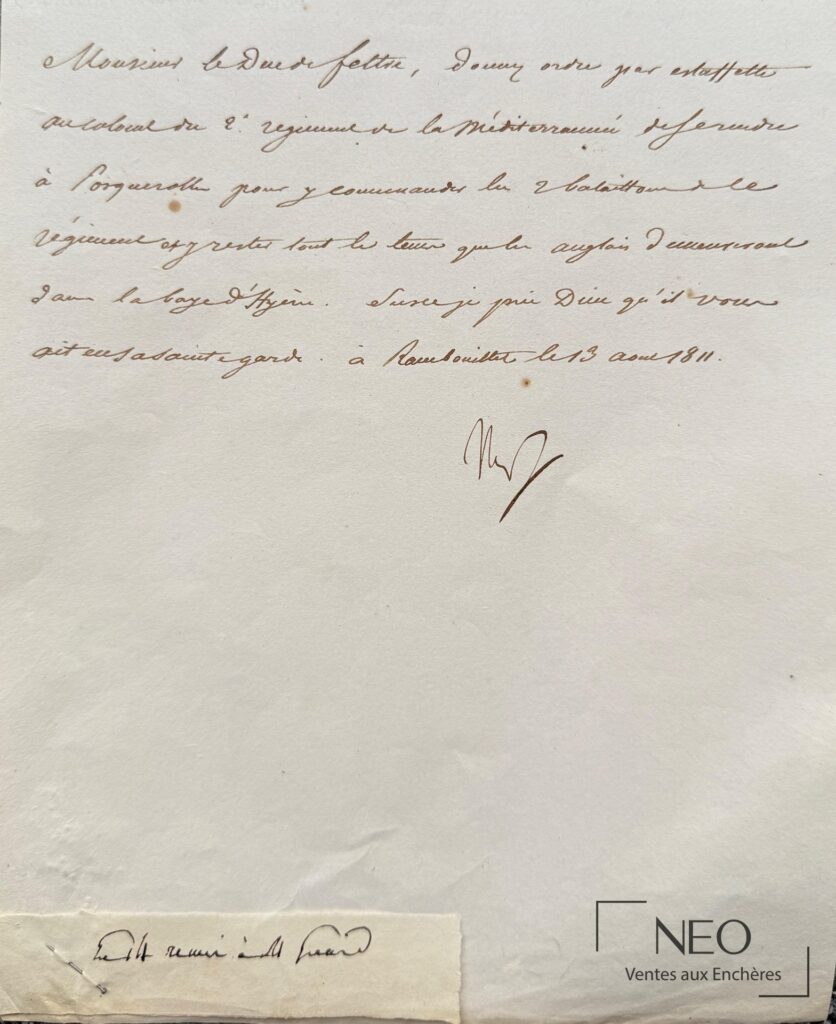 Monsieur le Duc de feltre, donnez ordre par estaffette
au colonel du 2e. régiment de la Méditerrannée de se rendre
à Porquerolles pour y commander les 2 bataillons de ce
régiment et y rester tout le tems que les anglais demeureront
dans la baye d'Hyères. Sur ce je prie Dieu qu'il vous
ait en sa sainte garde. à Rambouillet le 13 aout 1811.
Np
remis à M
NEO
Ventes aux Enchères